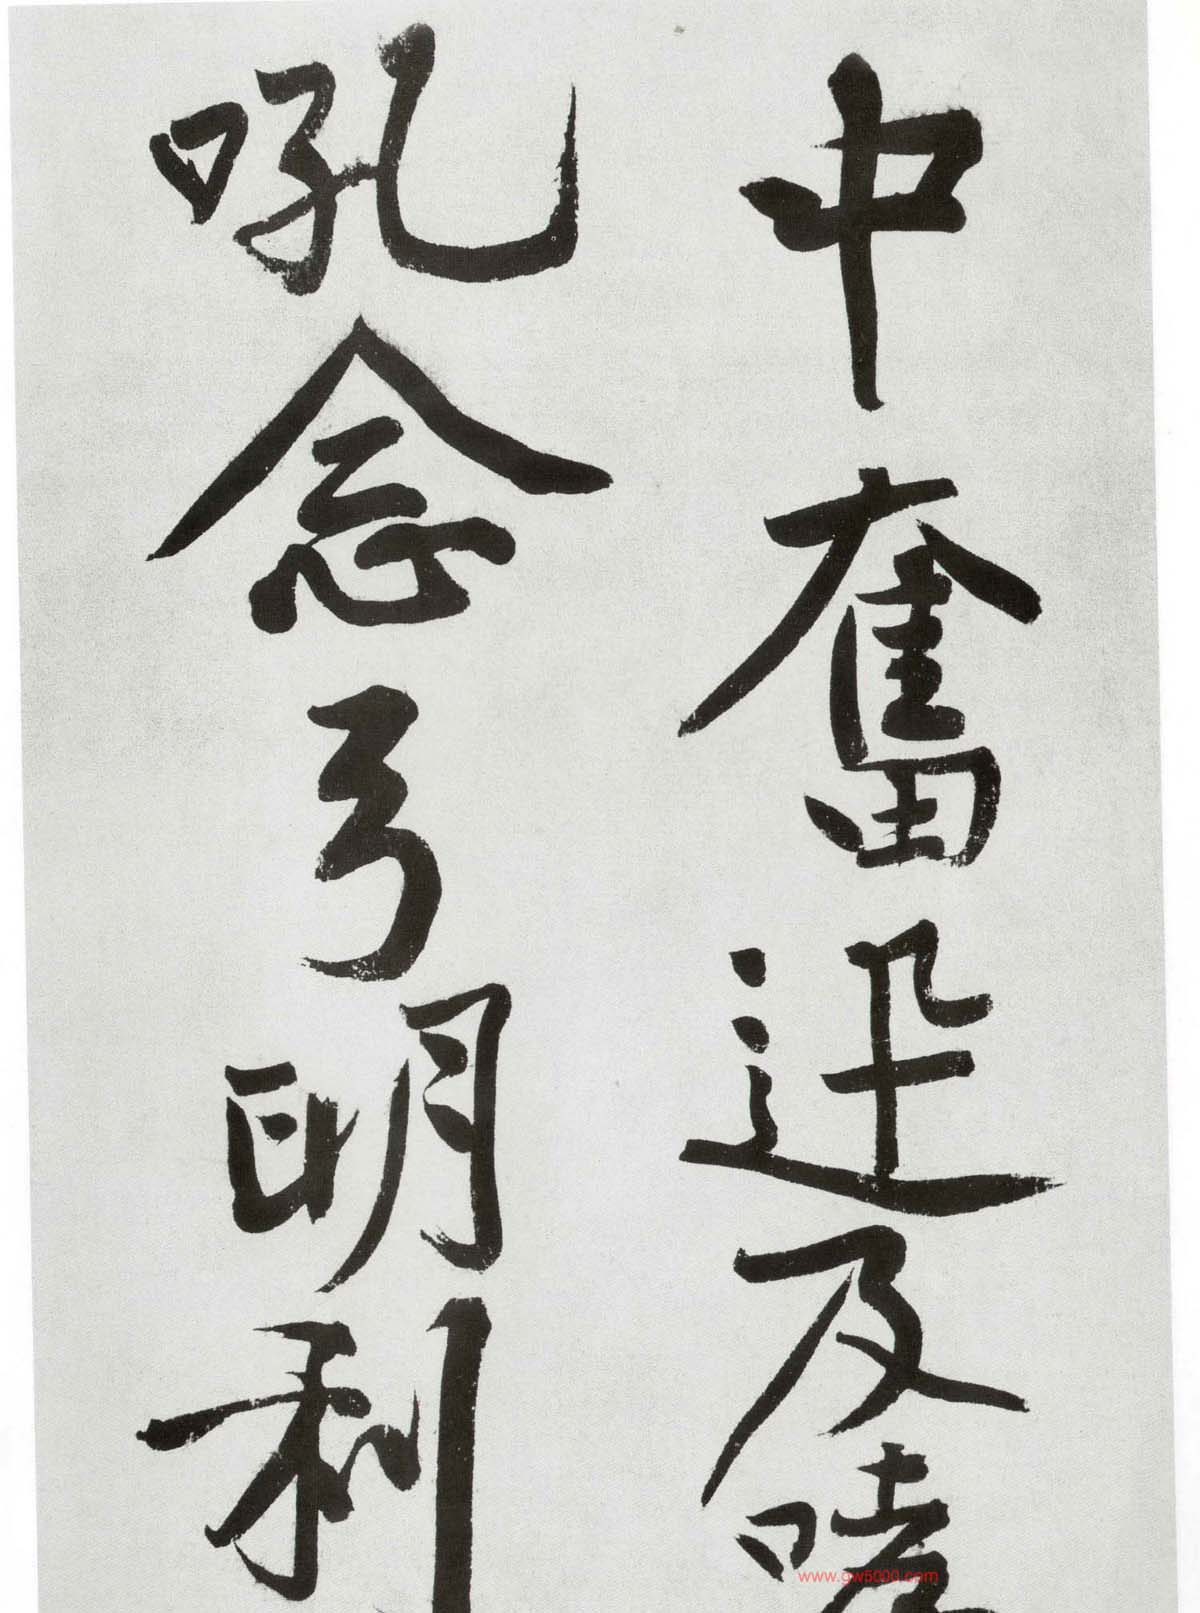 中奮迅及哮
吼念弓明利
www.gw5000.com